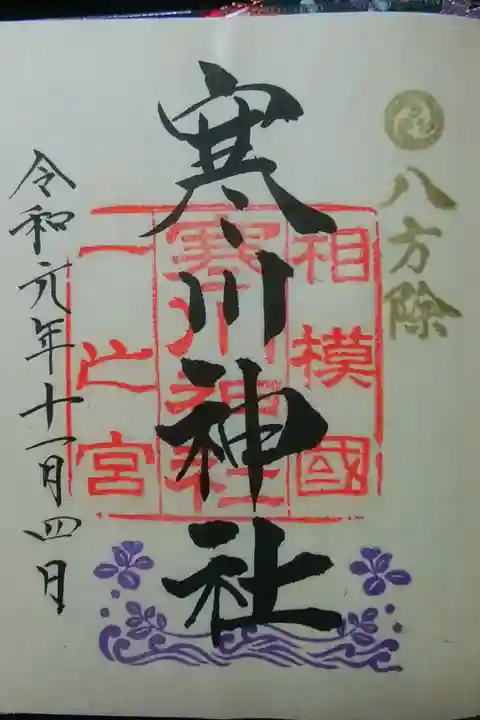 八方除
寒川神社
相模國
寒川神社
一之宮
令和元年十一月四日